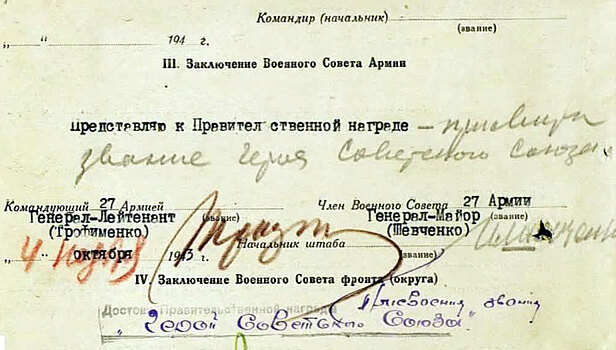 Командир (начальник)
(звание)
„ “ 194 г.
III. Заключение Военного Совета Армии
Представляю к Правительственной награде —
звание Героя Советского Союза.
Командующий 27 Армией Член Военного Совета 27 Армии
Генерал-Лейтенант (звание) Генерал-Майор (звание)
(Трофименко) (Шевченко)
„4 “ октября 1943 г. Начальник штаба (звание)
IV. Заключение Военного Совета фронта (округа)
Достоин Правительственной награды Присвоения звания
„Герой Советского Союза“